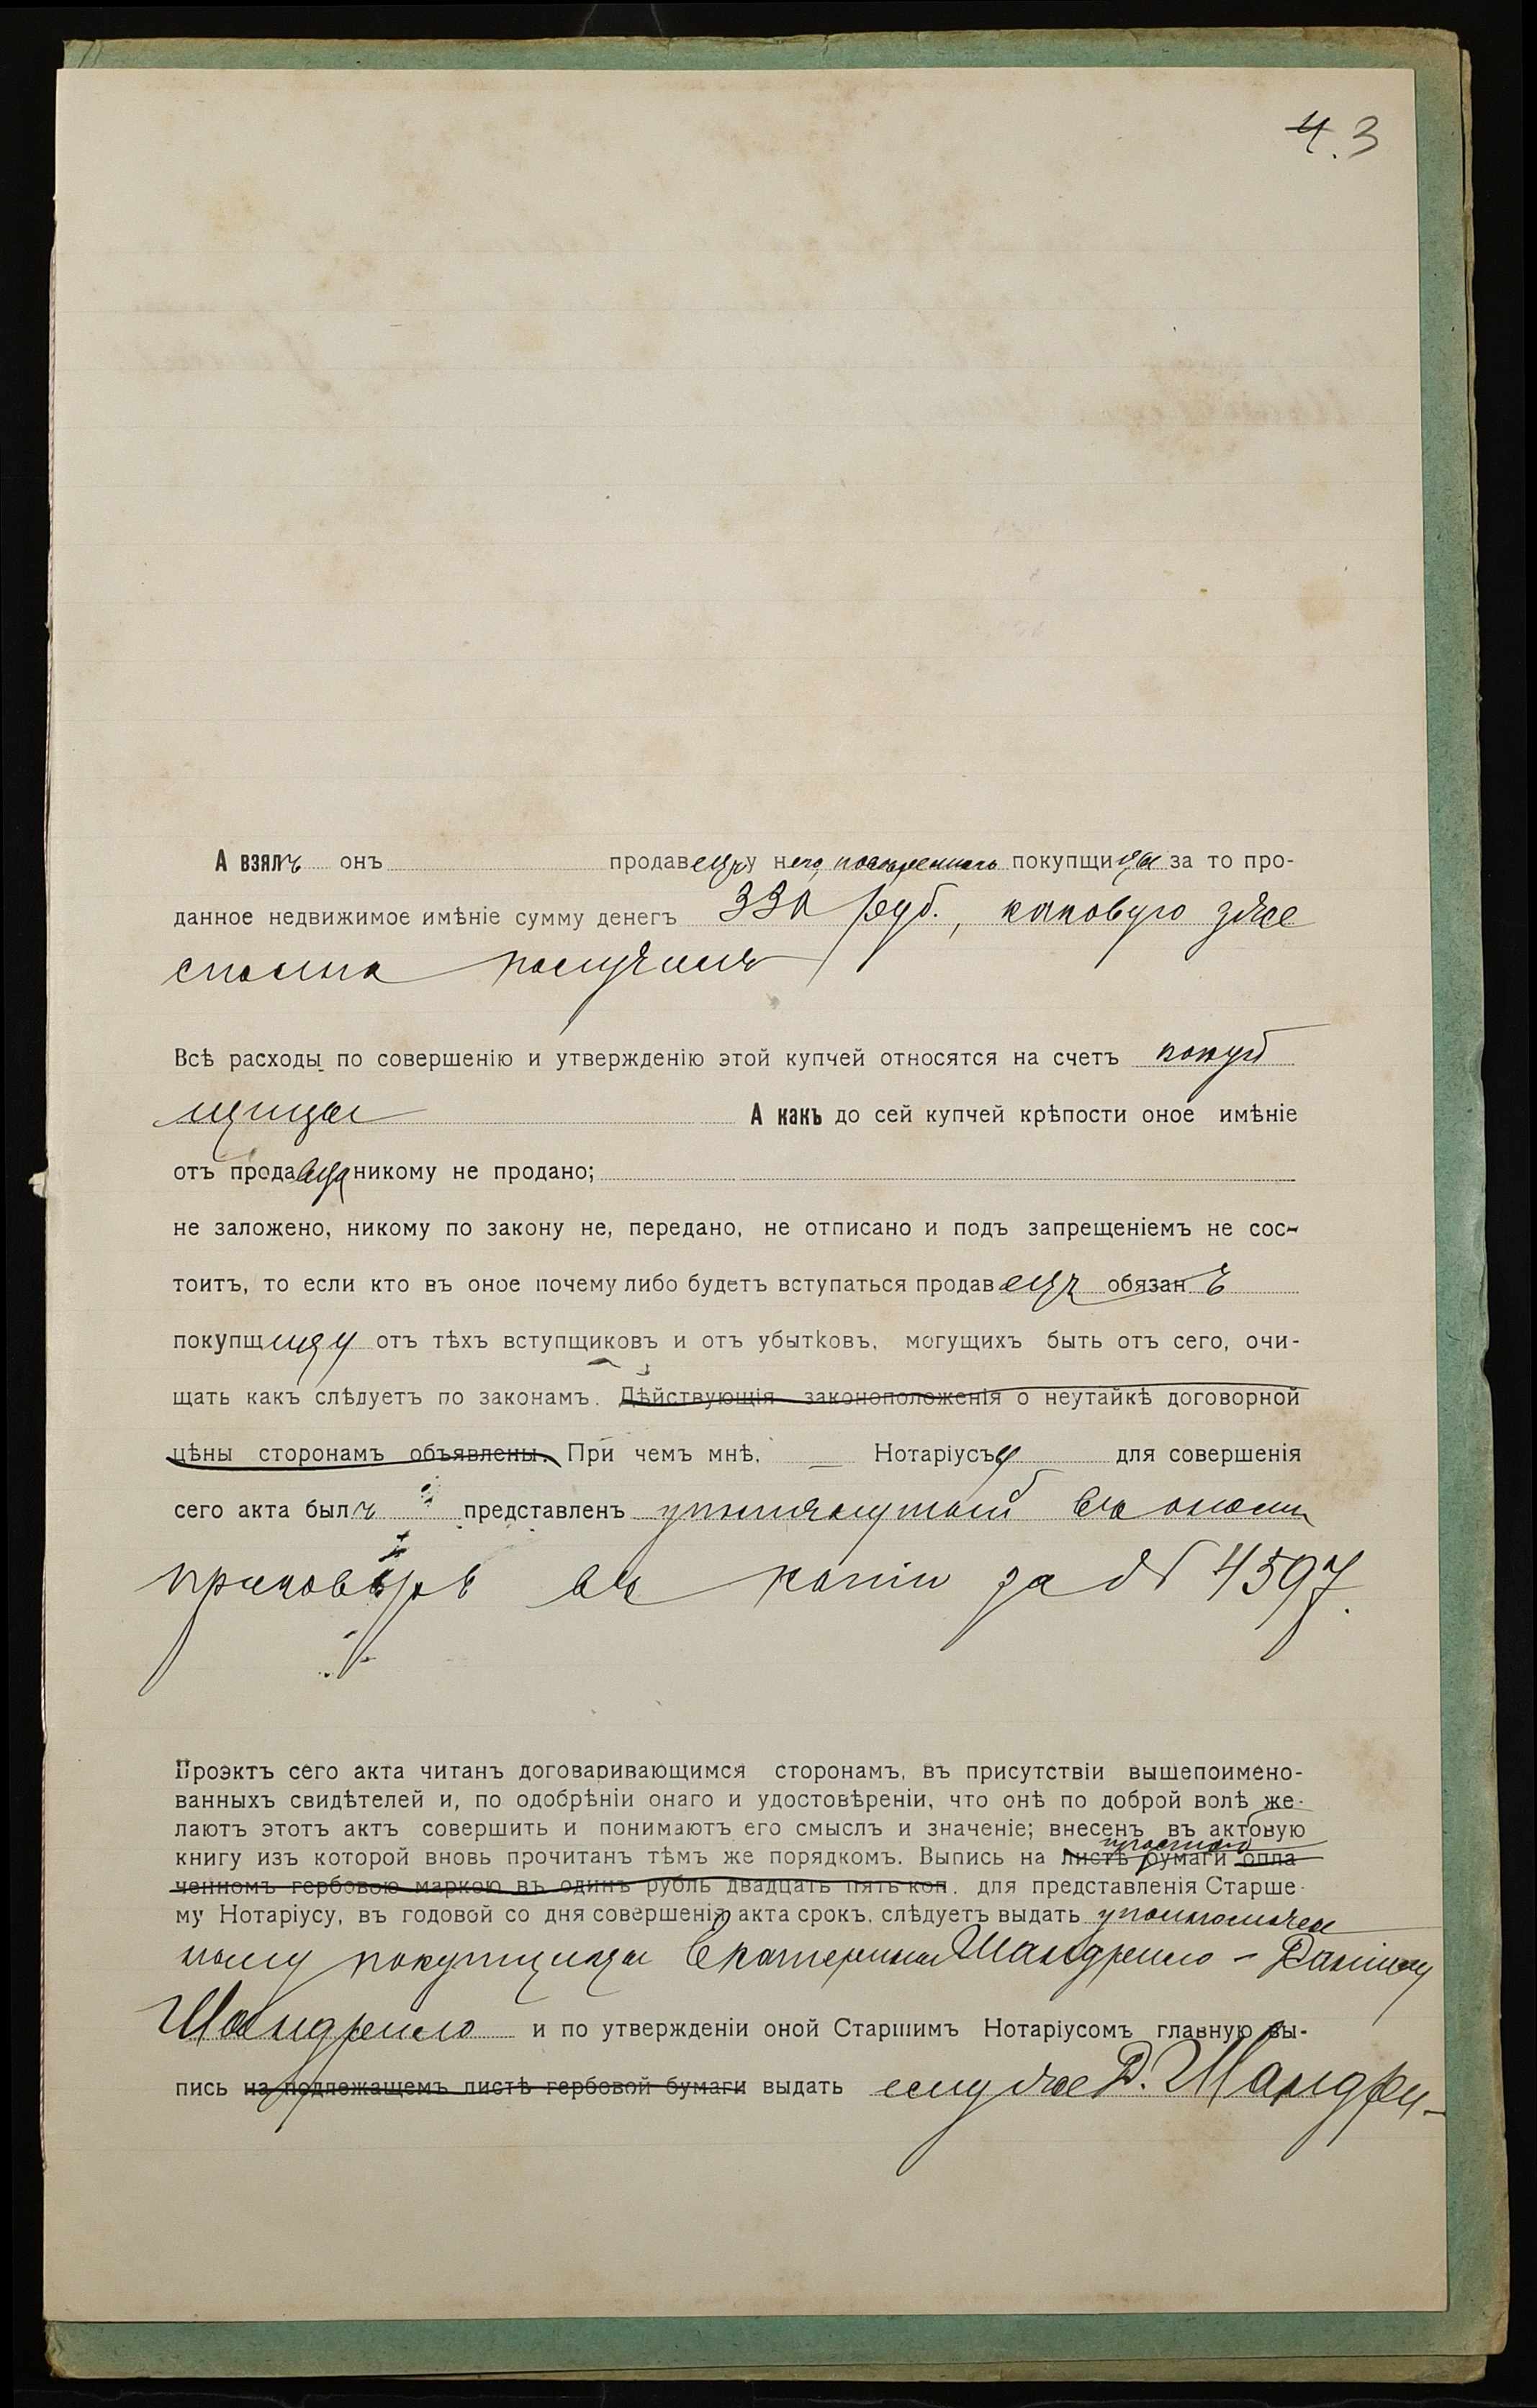 4. 3
А взялъ онъ продавецъ у него, повѣреннаго покупщицы за то про-
данное недвижимое имѣніе сумму денегъ 330 руб., каковую уже
сполна получилъ
Всѣ расходы по совершенію и утвержденію этой купчей относятся на счетъ покуп
щицы А какъ до сей купчей крѣпости оное имѣніе
отъ продавца никому не продано;
не заложено, никому по закону не, передано, не отписано и подъ запрещеніемъ не сос-
тоитъ, то если кто въ оное почему либо будетъ вступаться продавецъ обязанъ
покупщицу отъ тѣхъ вступщиковъ и отъ убытковъ, могущихъ быть отъ сего, очи-
щать какъ слѣдуетъ по законамъ. Дѣйствующія законоположенія о неутайкѣ договорной
цѣны сторонамъ объявлены. При чемъ мнѣ, Нотаріусъу для совершенія
сего акта былъ представленъ упомянутый въ ономъ
приговоръ въ копіи за № 4597.
Проэктъ сего акта читанъ договаривающимся сторонамъ, въ присутствіи вышепоимено-
ванныхъ свидѣтелей и, по одобрѣніи онаго и удостовѣреніи, что онѣ по доброй волѣ же-
лаютъ этотъ актъ совершить и понимаютъ его смыслъ и значеніе; внесенъ въ актовую
простой
книгу изъ которой вновь прочитанъ тѣмъ же порядкомъ. Выпись на листѣ бумаги опла
ченномъ гербовою маркою въ одинъ рубль двадцать пять коп. для представленія Старше-
му Нотаріусу, въ годовой со дня совершенія акта срокъ, слѣдуетъ выдать уполномочен
ному покупщицы Екатерины Шандрено - Данилу
Шандрено и по утвержденіи оной Старшимъ Нотаріусомъ главную вы-
пись на подлежащемъ листѣ гербовой бумаги выдать ему же Д. Шандре-